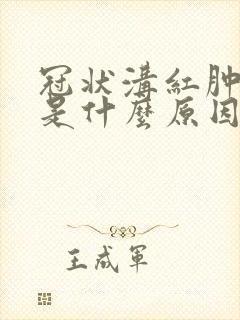 冠状溝紅肿
是什麼原因
王成軍